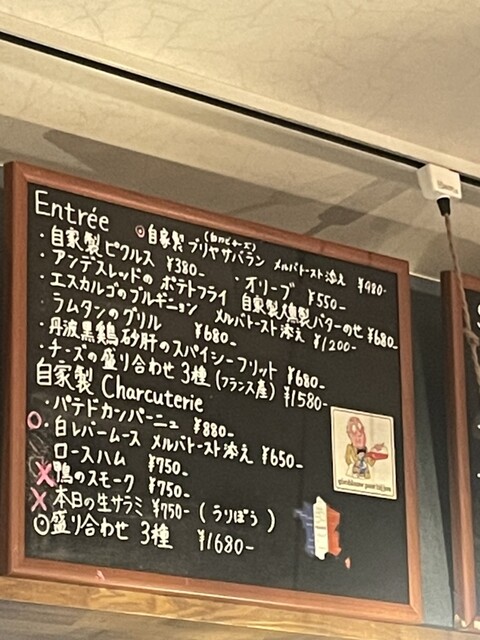 Entrée
(白カビチーズ)
◎自家製 ブリヤサバラン メルバトースト添え ¥980-
・自家製ピクルス ¥380- ・オリーブ ¥550-
・アンデスレッドの ポテトフライ 自家製燻製バターのせ ¥680-
・エスカルゴのブルギニョン メルバトースト添え ¥1200-
・ラムタンのグリル ¥680-
・丹波黒鶏 砂肝のスパイシーフリット ¥680-
・チーズの盛り合わせ 3種 (フランス産) ¥1580-
自家製 Charcuterie
・パテドカンパーニュ ¥880-
・白レバームース メルバトースト添え ¥650-
ロースハム ¥750-
鴨のスモーク ¥750-
本日の生サラミ ¥750- (うりぼう)
◎盛り合わせ 3種 ¥1680-